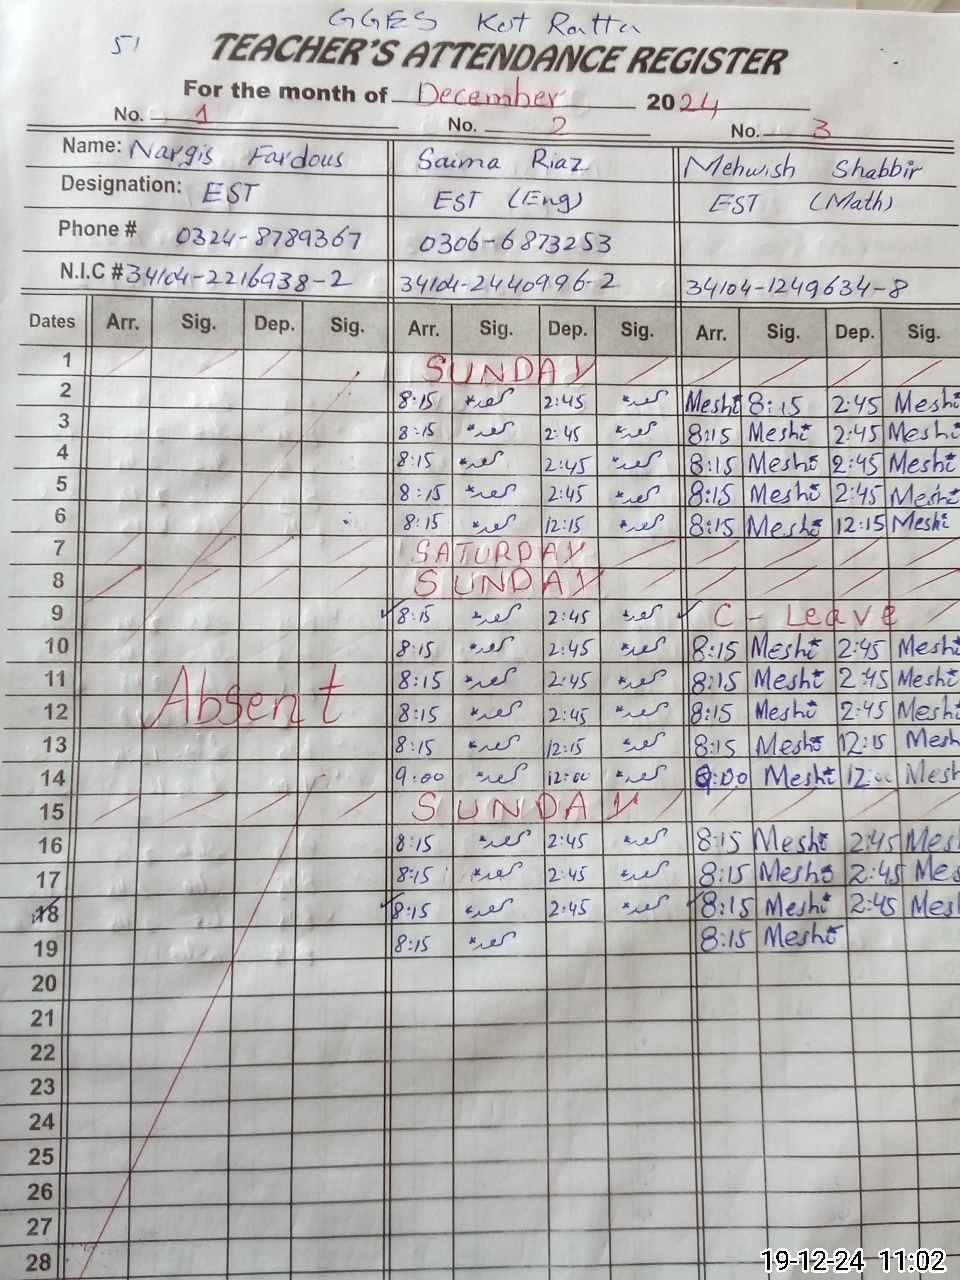 GGES Kot Ratta
51
TEACHER'S ATTENDANCE REGISTER
For the month of December 2024
No. 1 No. 2 No. 3
Name: Nargis Fardous Saima Riaz Mehwish Shabbir
Designation: EST EST (Eng) EST (Math)
Phone # 0324-8789367 0306-6873253
N.I.C # 34104-2216938-2 34104-2440996-2 34104-1249634-8
Dates Arr. Sig. Dep. Sig. Arr. Sig. Dep. Sig. Arr. Sig. Dep. Sig.
1 SUNDAY
2 8:15 2:45 Meshi 8:15 2:45 Meshi
3 8:15 2:45 8:15 Meshi 2:45 Meshi
4 8:15 2:45 8:15 Meshi 2:45 Meshi
5 8:15 2:45 8:15 Meshi 2:45 Meshi
6 8:15 12:15 8:15 Meshi 12:15 Meshi
7 SATURDAY
8 SUNDAY
9 8:15 2:45 C - Leave
10 8:15 2:45 8:15 Meshi 2:45 Meshi
11 Absent 8:15 2:45 8:15 Meshi 2:45 Meshi
12 8:15 2:45 8:15 Meshi 2:45 Meshi
13 8:15 12:15 8:15 Meshi 12:15 Mesh
14 9:00 12:00 9:00 Meshi 12:00 Mesh
15 SUNDAY
16 8:15 2:45 8:15 Meshi 2:45 Mes
17 8:15 2:45 8:15 Meshi 2:45 Mes
18 8:15 2:45 8:15 Meshi 2:45 Mes
19 8:15 8:15 Meshi
20
21
22
23
24
25
26
27
28
19-12-24 11:02